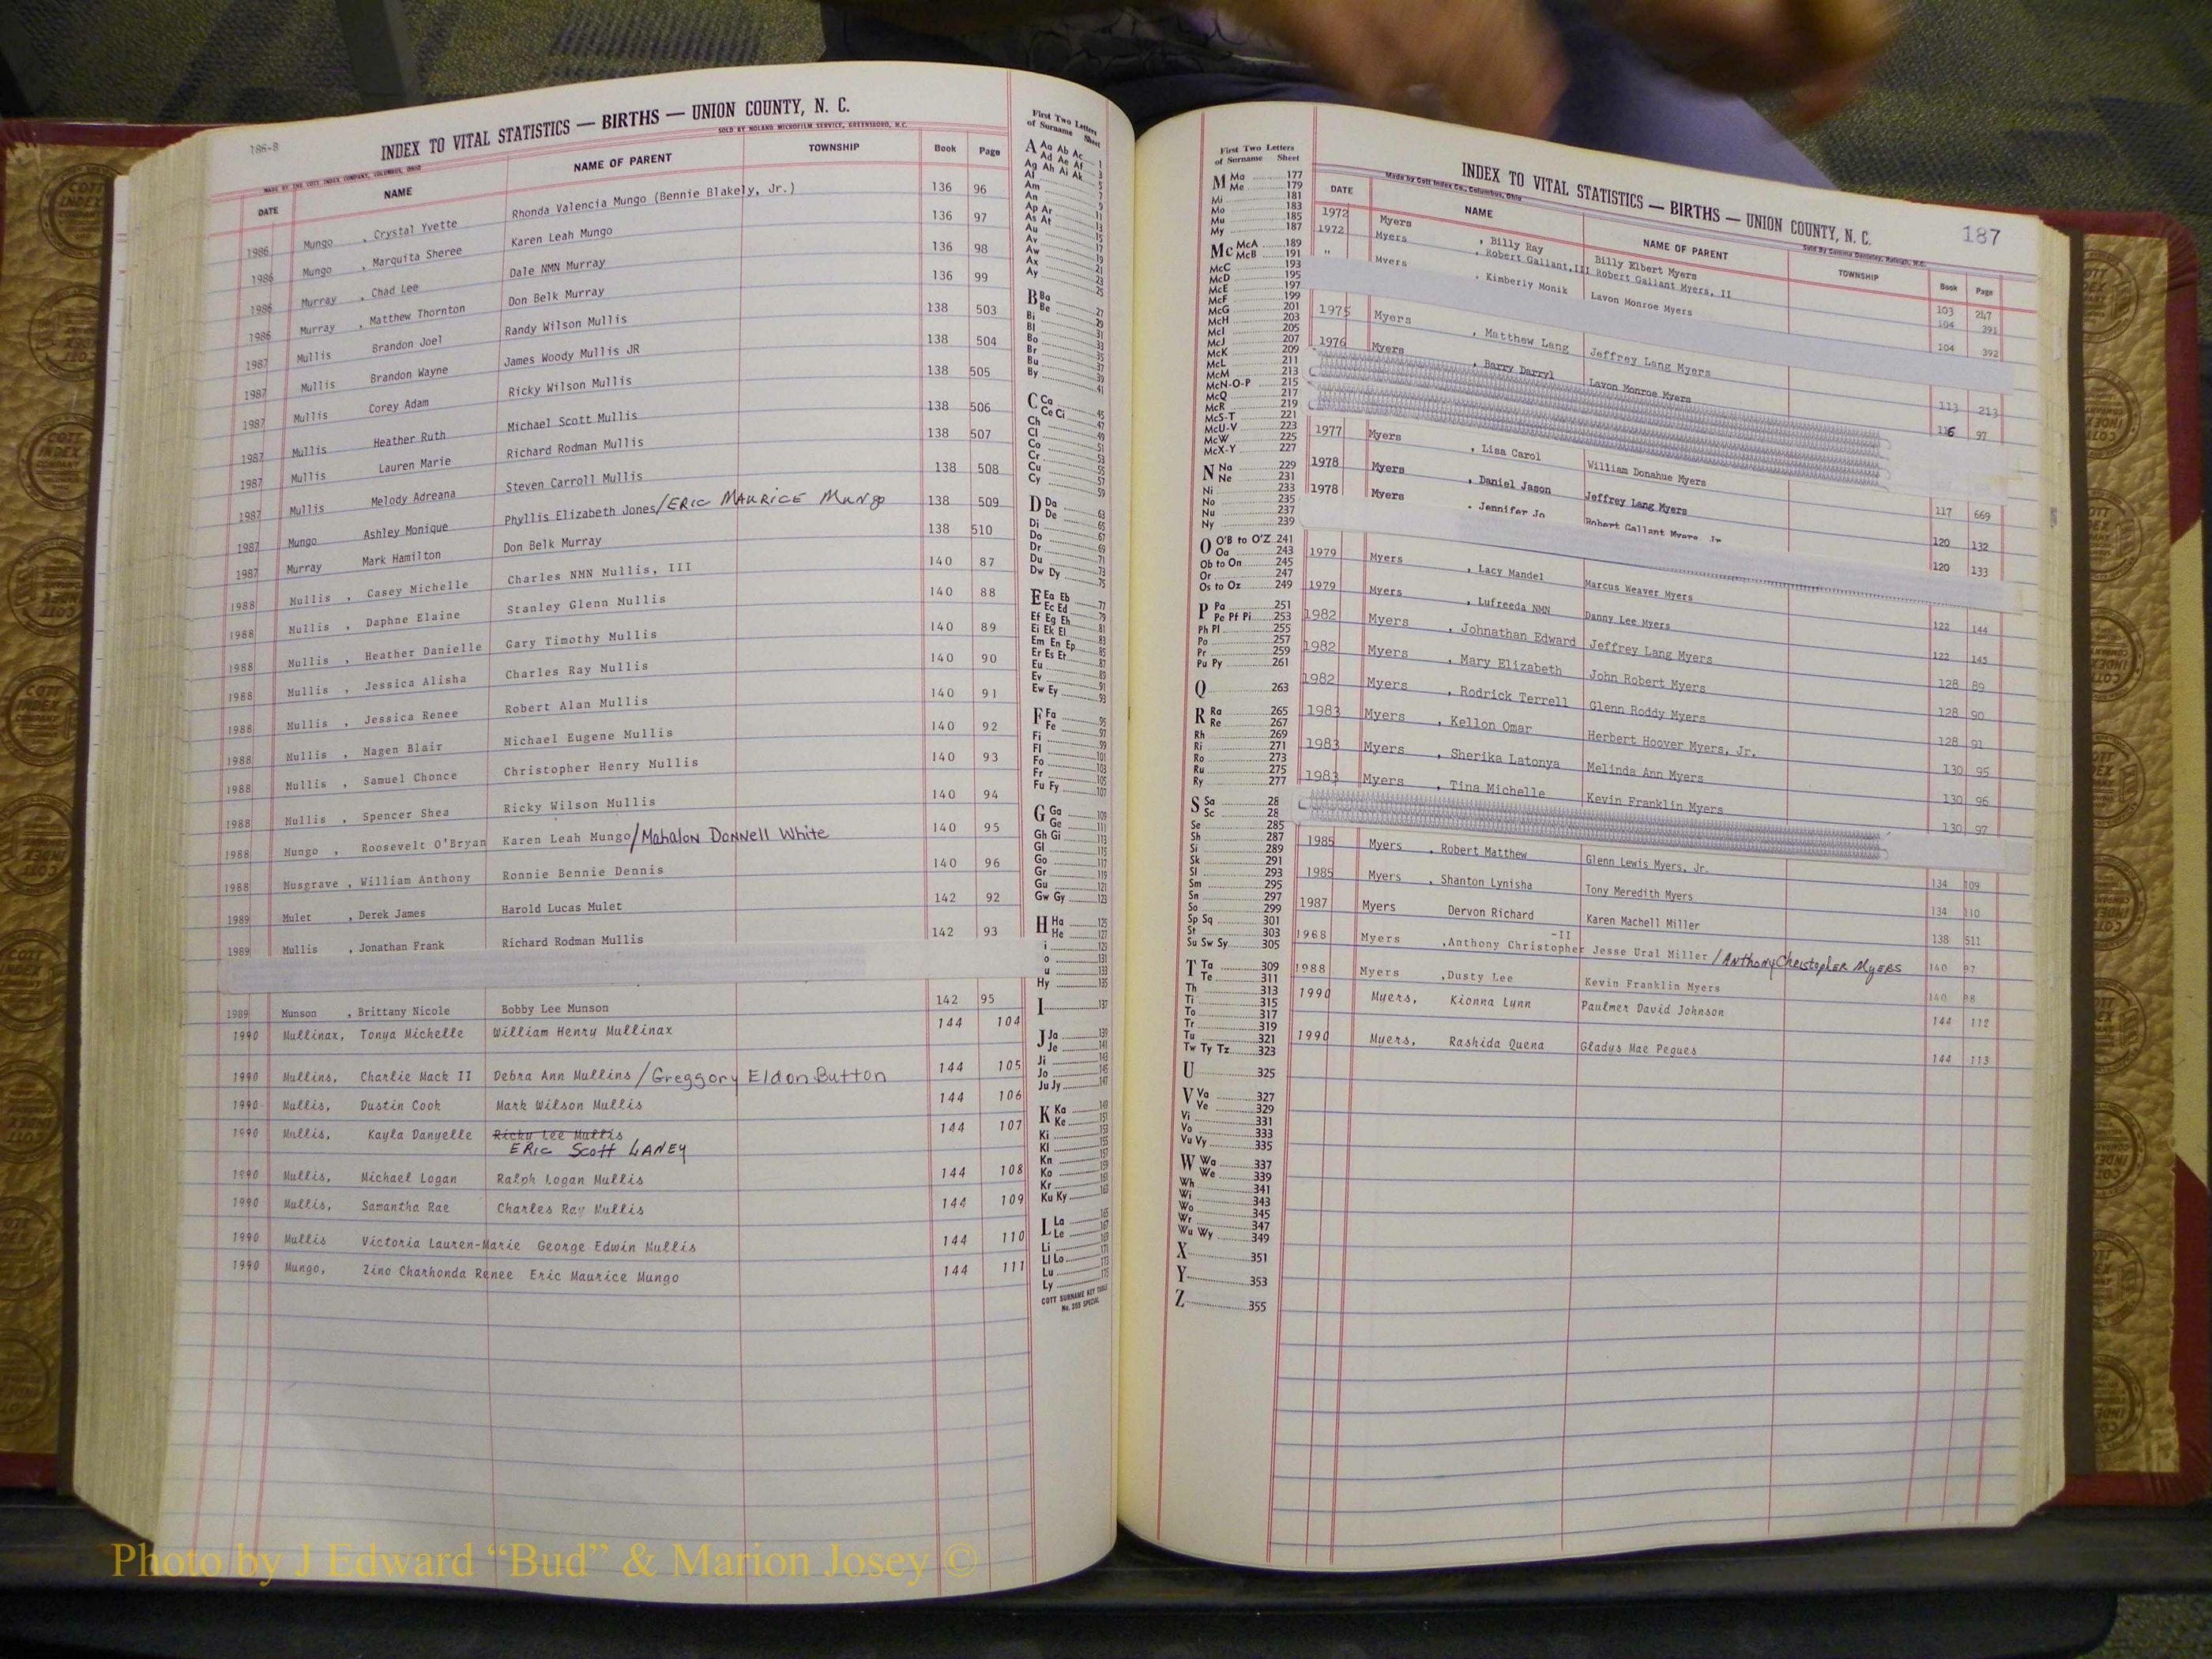 186-B
INDEX TO VITAL STATISTICS — BIRTHS — UNION COUNTY, N. C.
MADE BY THE COTT INDEX COMPANY, COLUMBUS, OHIO SOLD BY NOLAND MICROFILM SERVICE, GREENSBORO, N.C.
DATE NAME NAME OF PARENT TOWNSHIP Book Page
1986 Mungo , Crystal Yvette Rhonda Valencia Mungo (Bennie Blakely, Jr.) 136 96
1986 Mungo , Marquita Sheree Karen Leah Mungo 136 97
1986 Murray , Chad Lee Dale NMN Murray 136 98
1986 Murray , Matthew Thornton Don Belk Murray 136 99
1987 Mullis Brandon Joel Randy Wilson Mullis 138 503
1987 Mullis Brandon Wayne James Woody Mullis JR 138 504
1987 Mullis Corey Adam Ricky Wilson Mullis 138 505
1987 Mullis Heather Ruth Michael Scott Mullis 138 506
1987 Mullis Lauren Marie Richard Rodman Mullis 138 507
1987 Mullis Melody Adreana Steven Carroll Mullis 138 508
1987 Mungo Ashley Monique Phyllis Elizabeth Jones/ERIC MAURICE Mungo 138 509
1987 Murray Mark Hamilton Don Belk Murray 138 510
1988 Mullis , Casey Michelle Charles NMN Mullis, III 140 87
1988 Mullis , Daphne Elaine Stanley Glenn Mullis 140 88
1988 Mullis , Heather Danielle Gary Timothy Mullis 140 89
1988 Mullis , Jessica Alisha Charles Ray Mullis 140 90
1988 Mullis , Jessica Renee Robert Alan Mullis 140 91
1988 Mullis , Magen Blair Michael Eugene Mullis 140 92
1988 Mullis , Samuel Chonce Christopher Henry Mullis 140 93
1988 Mullis , Spencer Shea Ricky Wilson Mullis 140 94
1988 Mungo , Roosevelt O'Bryan Karen Leah Mungo/Mahalon Donnell White 140 95
1988 Musgrave , William Anthony Ronnie Bennie Dennis 140 96
1989 Mulet , Derek James Harold Lucas Mulet 142 92
1989 Mullis , Jonathan Frank Richard Rodman Mullis 142 93
1989 Munson , Brittany Nicole Bobby Lee Munson 142 95
1990 Mullinax, Tonya Michelle William Henry Mullinax 144 104
1990 Mullins, Charlie Mack II Debra Ann Mullins / Greggory Eldon Button 144 105
1990 Mullis, Dustin Cook Mark Wilson Mullis 144 106
1990 Mullis, Kayla Danyelle Ricky Lee Mullis 144 107
ERic Scott LANEY
1990 Mullis, Michael Logan Ralph Logan Mullis 144 108
1990 Mullis, Samantha Rae Charles Ray Mullis 144 109
1990 Mullis Victoria Lauren-Marie George Edwin Mullis 144 110
1990 Mungo, Zino Charhonda Renee Eric Maurice Mungo 144 111
First Two Letters
of Surname Sheet
A Aa Ab Ac 1
Ad Ae Af 3
Ag Ah Ai Ak 5
Al 7
Am 9
An 11
Ap Ar 13
As At 15
Au 17
Av 19
Aw 21
Ax 23
Ay 25
B Ba 27
Be 29
Bi 31
Bl 33
Bo 35
Br 37
Bu 39
By 41
C Ca 45
Ce Ci 47
Ch 49
Cl 51
Co 53
Cr 55
Cu 57
Cy 59
D Da 63
De 65
Di 67
Do 69
Dr 71
Du 73
Dw Dy 75
E Ea Eb 77
Ec Ed 79
Ef Eg Eh 81
Ei Ek El 83
Em En Ep 85
Er Es Et 87
Eu 89
Ev 91
Ew Ey 93
F Fa 95
Fe 97
Fi 99
Fl 101
Fo 103
Fr 105
Fu Fy 107
G Ga 109
Ge 111
Gh Gi 113
Gl 115
Go 117
Gr 119
Gu 121
Gw Gy 123
H Ha 125
He 127
i 129
o 131
u 133
Hy 135
I 137
J Ja 139
Je 141
Ji 143
Jo 145
Ju Jy 147
K Ka 149
Ke 151
Ki 153
Kl 155
Kn 157
Ko 159
Kr 161
Ku Ky 163
L La 165
Le 167
Li 171
Ll Lo 171
Lu 173
Ly 175
COTT SURNAME KEY TABLE
No. 355 SPECIAL
First Two Letters
of Surname Sheet
M Ma 177
Me 179
Mi 181
Mo 183
Mu 185
My 187
Mc McA 189
McB 191
McC 193
McD 195
McE 197
McF 199
McG 201
McH 203
McI 205
McJ 207
McK 209
McL 211
McM 213
McN-O-P 215
McQ 217
McR 219
McS-T 221
McU-V 223
McW 225
McX-Y 227
N Na 229
Ne 231
Ni 233
No 235
Nu 237
Ny 239
O O'B to O'Z 241
Oa 243
Ob to On 245
Or 247
Os to Oz 249
P Pa 251
Pe Pf Pi 253
Ph Pl 255
Po 257
Pr 259
Pu Py 261
Q 263
R Ra 265
Re 267
Rh 269
Ri 271
Ro 273
Ru 275
Ry 277
S Sa 28
Sc 28
Se 285
Sh 287
Si 289
Sk 291
Sl 293
Sm 295
Sn 297
So 299
Sp Sq 301
St 303
Su Sw Sy 305
T Ta 309
Te 311
Th 313
Ti 315
To 317
Tr 319
Tu 321
Tw Ty Tz 323
U 325
V Va 327
Ve 329
Vi 331
Vo 333
Vu Vy 335
W Wa 337
We 339
Wh 341
Wi 343
Wo 345
Wr 347
Wu Wy 349
X 351
Y 353
Z 355
INDEX TO VITAL STATISTICS — BIRTHS — UNION COUNTY, N. C. 187
Made by Cott Index Co., Columbus, Ohio
DATE NAME NAME OF PARENT TOWNSHIP Book Page
1972 Myers , Billy Ray Billy Elbert Myers 103 247
1972 Myers , Robert Gallant,III Robert Gallant Myers, II 104 391
" Myers , Kimberly Monik Lavon Monroe Myers 104 392
1975 Myers , Matthew Lang Jeffrey Lang Myers 113 213
1976 Myers , Barry Darryl Lavon Monroe Myers 116 97
1977 Myers , Lisa Carol William Donahue Myers 117 669
1978 Myers , Daniel Jason Jeffrey Lang Myers 120 132
1978 Myers , Jennifer Jo Robert Gallant Myers Jr 120 133
1979 Myers , Lacy Mandel Marcus Weaver Myers 122 144
1979 Myers , Lufreeda NMN Danny Lee Myers 122 145
1982 Myers , Johnathan Edward Jeffrey Lang Myers 128 89
1982 Myers , Mary Elizabeth John Robert Myers 128 90
1982 Myers , Rodrick Terrell Glenn Roddy Myers 128 91
1983 Myers , Kellon Omar Herbert Hoover Myers, Jr. 130 95
1983 Myers , Sherika Latonya Melinda Ann Myers 130 96
1983 Myers , Tina Michelle Kevin Franklin Myers 130 97
1985 Myers , Robert Matthew Glenn Lewis Myers, Jr. 134 109
1985 Myers , Shanton Lynisha Tony Meredith Myers 134 110
1987 Myers Dervon Richard Karen Machell Miller 138 511
1988 Myers ,Anthony Christopher -II Jesse Ural Miller /Anthony Christopher Myers 140 97
1988 Myers ,Dusty Lee Kevin Franklin Myers 140 98
1990 Myers, Kionna Lynn Paulmer David Johnson 144 112
1990 Myers, Rashida Quena Gladys Mae Pegues 144 113
Photo by J Edward “Bud” & Marion Josey ©